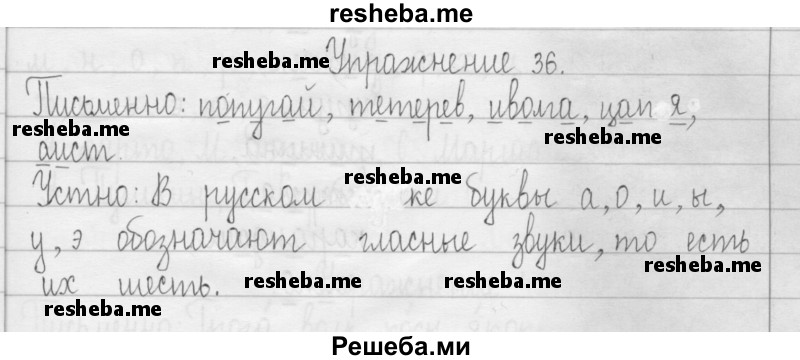 resheba.me
Упражнение 36.
resheba.me
Письменно: попугай, тетерев, иволга, цапля,
resheba.me
resheba.me
аист.
Устно: В русском же буквы а, о, и, ы,
resheba.me
у, э обозначают гласные звуки, то есть
resheba.me
их шесть.
resheba.me
resheba.me
resheba.me
Решеба.ми